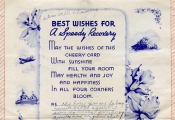 BEST WISHES FOR
A Speedy Recovery
MAY THE WISHES OF THIS
CHEERY CARD
WITH SUNSHINE
FILL YOUR ROOM
MAY HEALTH AND JOY
AND HAPPINESS
IN ALL FOUR CORNERS
BLOOM.